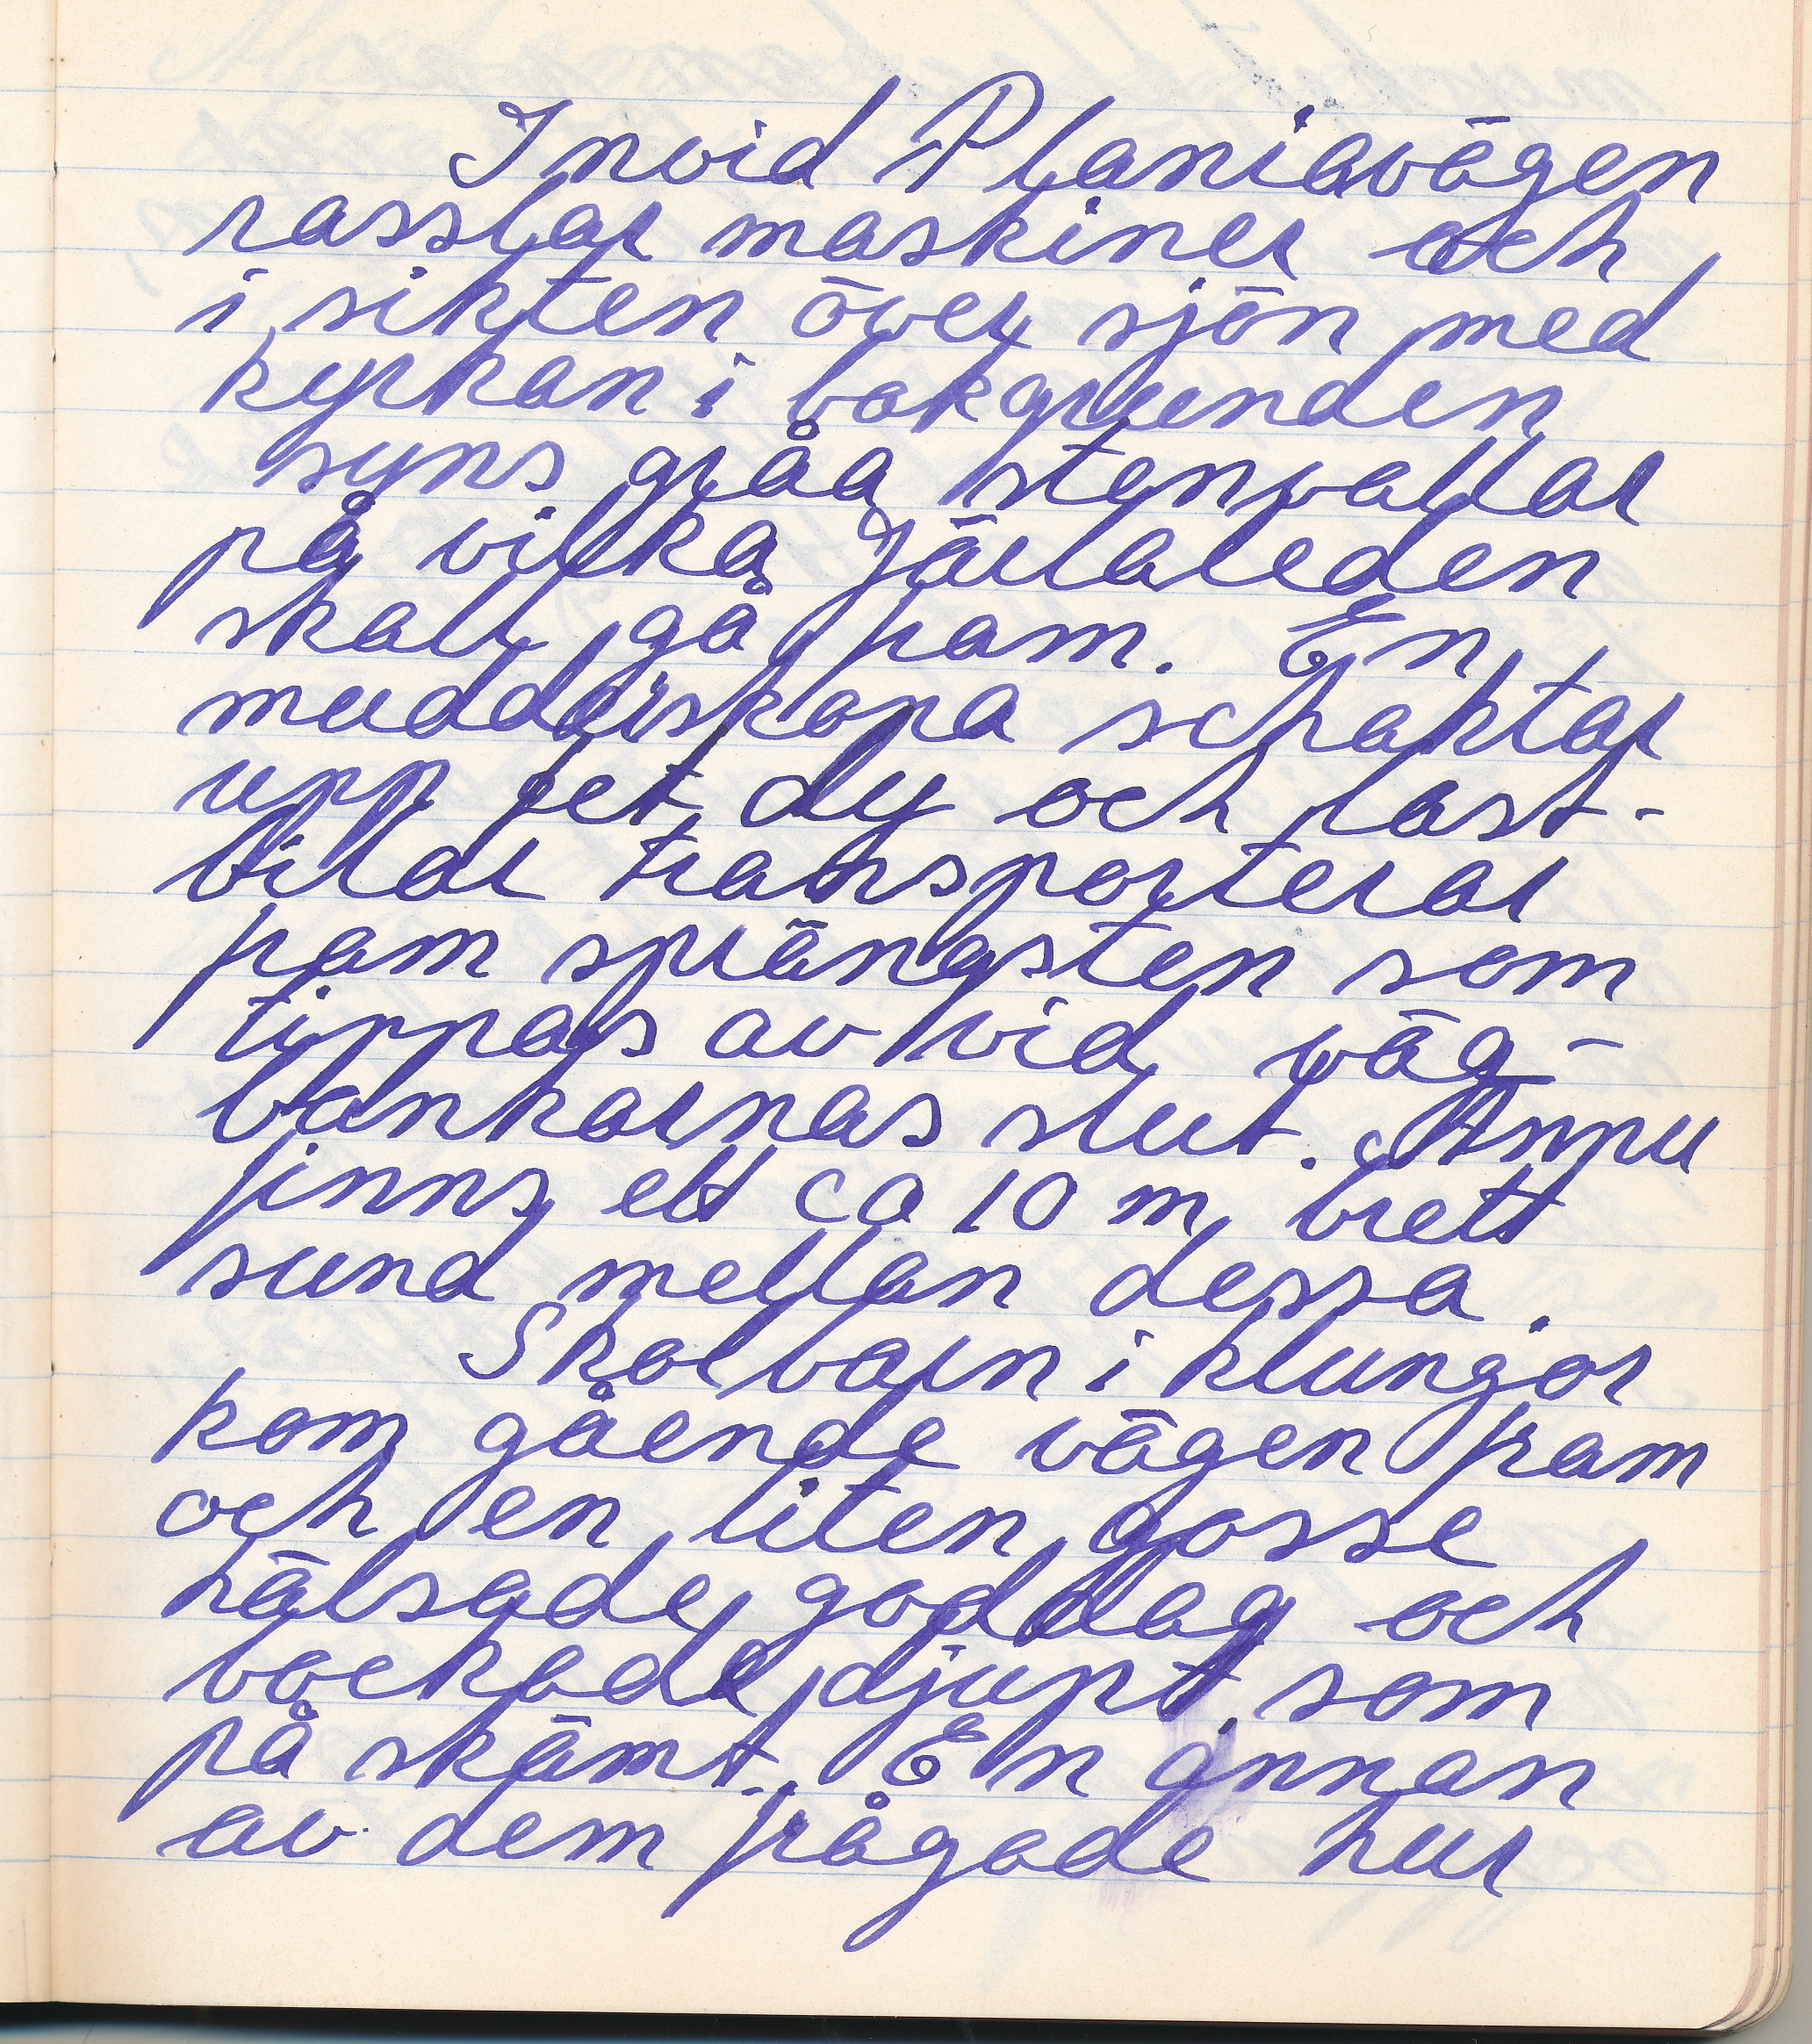 Invid Planiavägen
rasslar maskiner och
i sikten över sjön med
kyrkan i bakgrunden
syns gråa stenvallar
på vilka Järlaleden
skall gå fram. En
mudderskopa schaktar
upp fet dy och last-
bilar transporterar
fram sprängsten som
tippas av vid väg-
bankarnas slut. Ännu
finns ett ca 10 m brett
sund mellan dessa.
Skolbarn i klungor
kom gående vägen fram
och en liten gosse
hälsade goddag och
bockade djupt, som
på skämt. En annan
av dem frågade hur